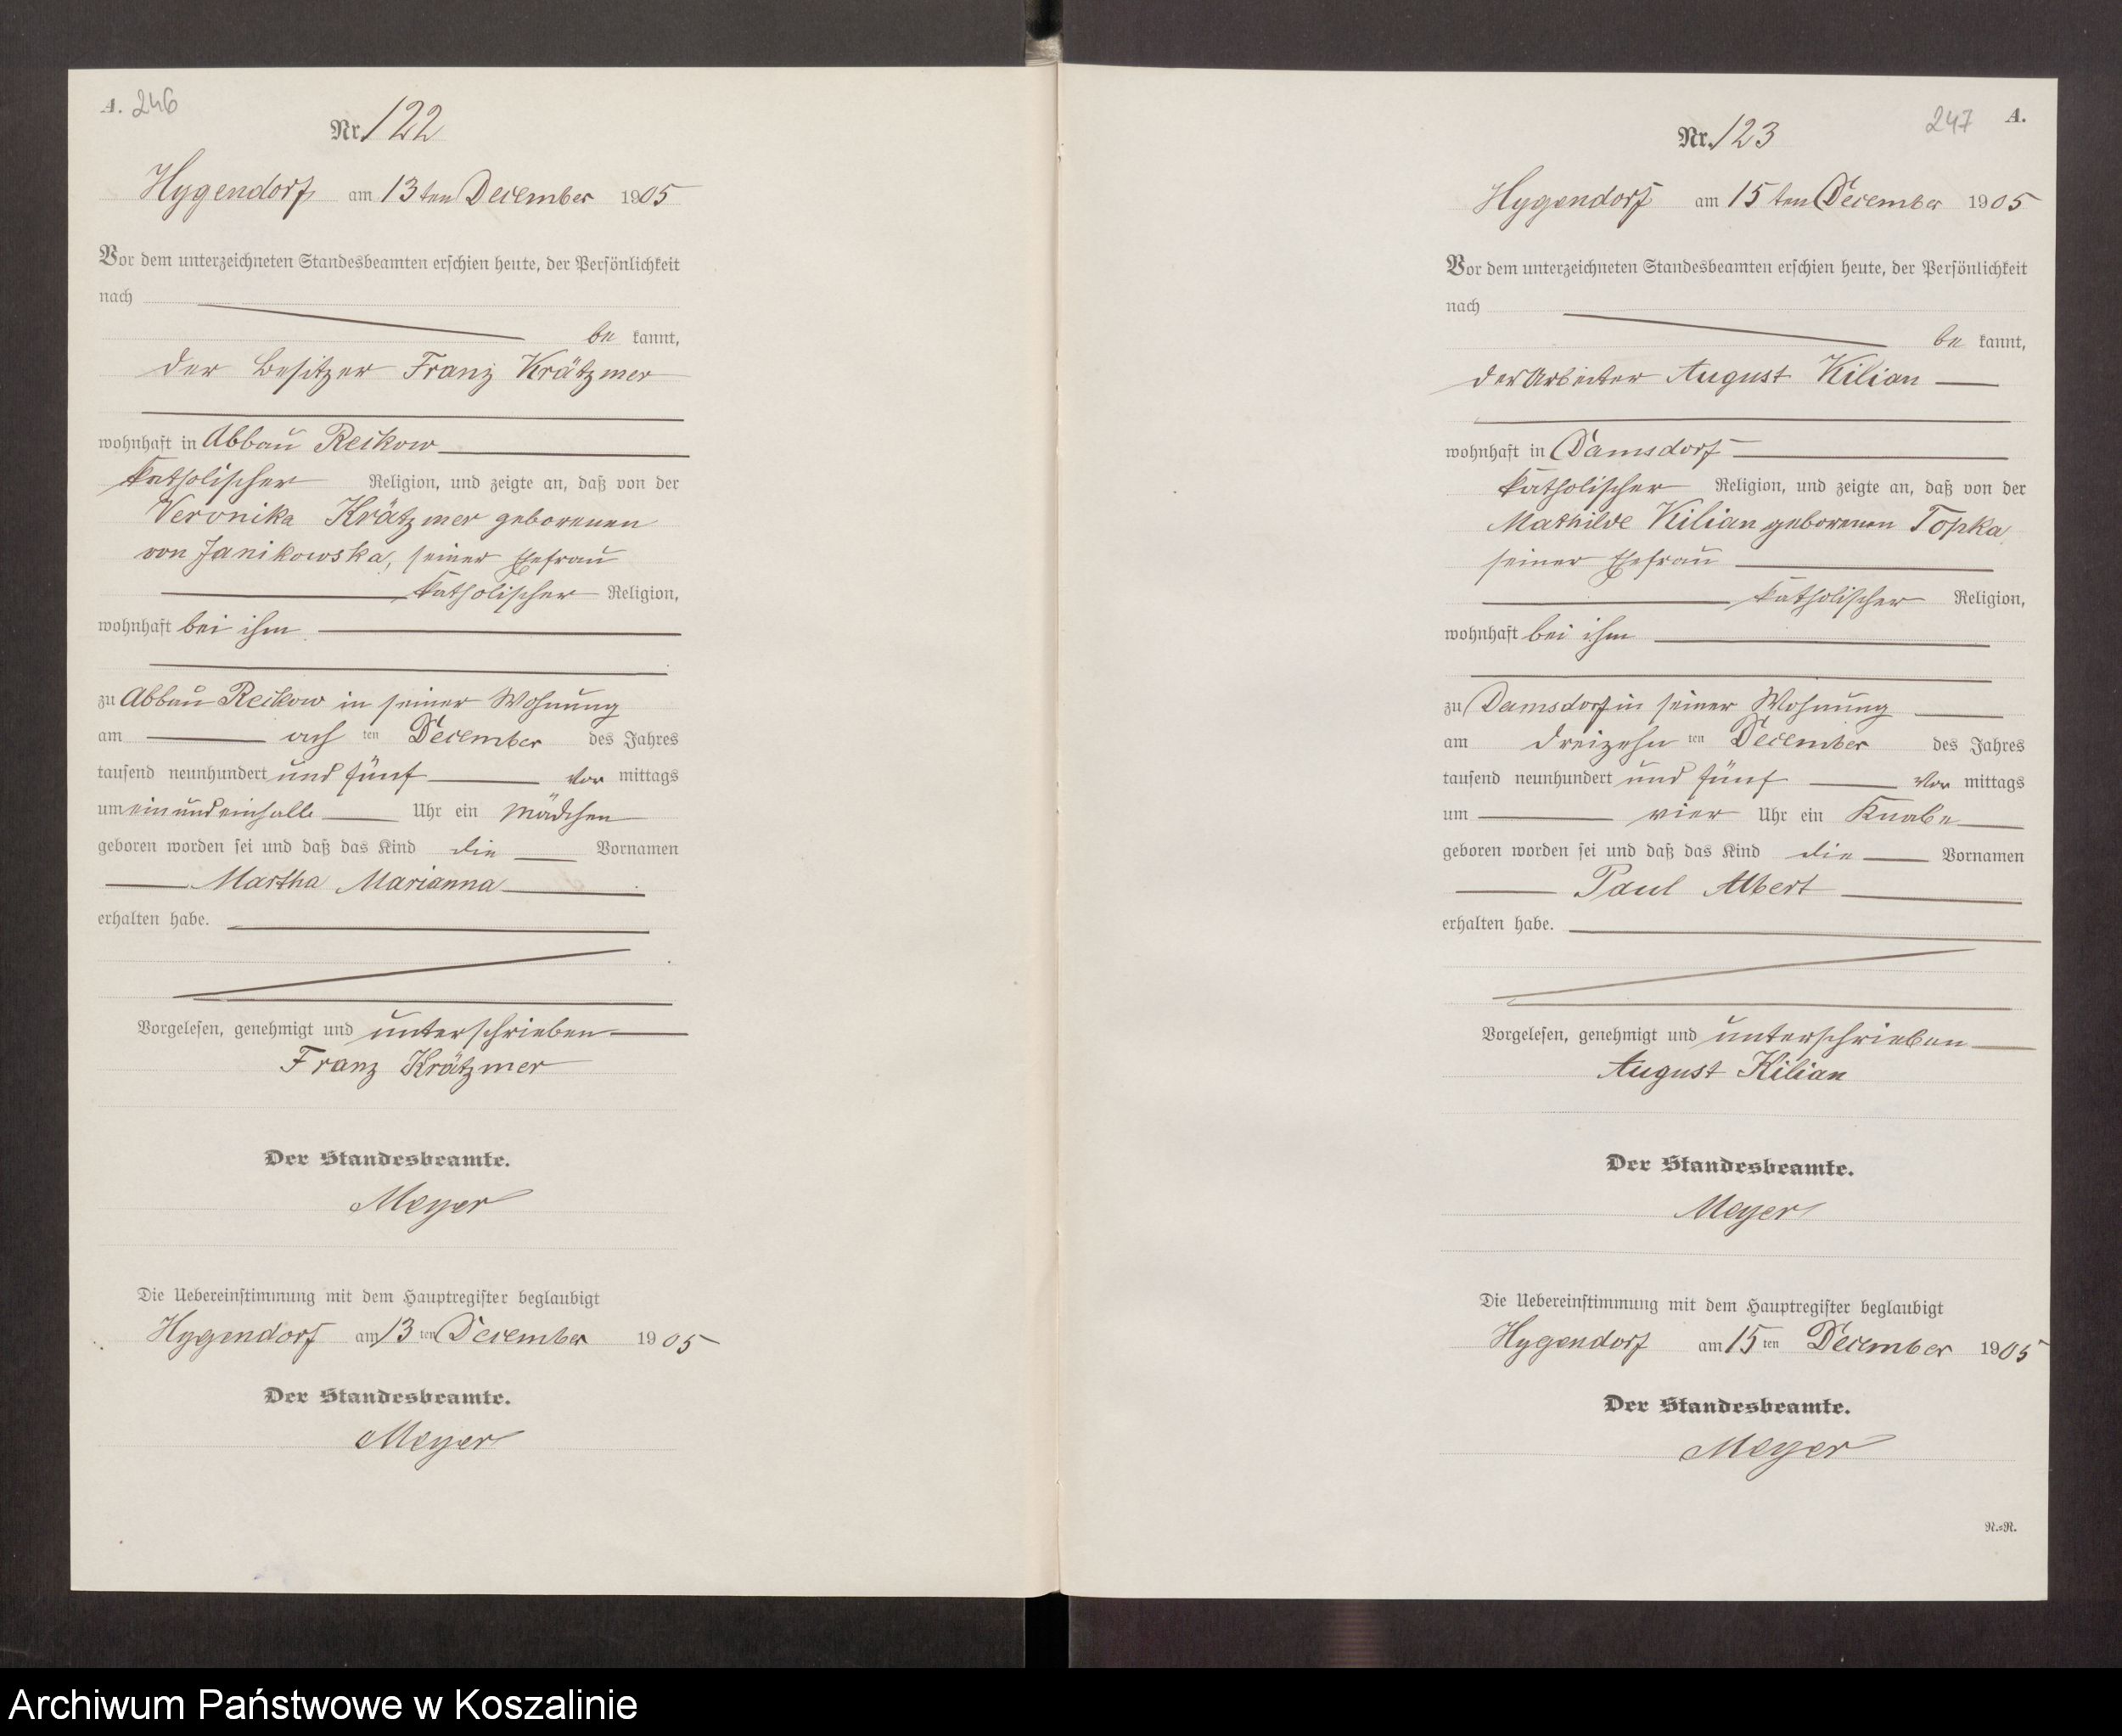 A. 246
Nr. 122
Hygendorf am 13ten December 1905
Vor dem unterzeichneten Standesbeamten erschien heute, der Persönlichkeit
nach
be kannt,
der Besitzer Franz Krätzmer
wohnhaft in Abbau Reckow
katholischer Religion, und zeigte an, daß von der
Veronika Krätzmer geborenen
von Janikowska, seiner Ehefrau
katholischer Religion,
wohnhaft bei ihm
zu Abbau Reckow in seiner Wohnung
am acht ten December des Jahres
tausend neunhundert und fünf Vor mittags
um ein und einhalb Uhr ein Mädchen
geboren worden sei und daß das Kind die Vornamen
Martha Marianna
erhalten habe.
Vorgelesen, genehmigt und unterschrieben
Franz Krätzmer
Der Standesbeamte.
Meyer
Die Uebereinstimmung mit dem Hauptregister beglaubigt
Hygendorf am 13 ten December 1905
Der Standesbeamte.
Meyer
247 A.
Nr. 123
Hygendorf am 15 ten December 1905
Vor dem unterzeichneten Standesbeamten erschien heute, der Persönlichkeit
nach
be kannt,
der Arbeiter August Kilian
wohnhaft in Damsdorf
katholischer Religion, und zeigte an, daß von der
Mathilde Kilian geborenen Topka,
seiner Ehefrau
katholischer Religion,
wohnhaft bei ihm
zu Damsdorf in seiner Wohnung
am dreizehn ten December des Jahres
tausend neunhundert und fünf Vor mittags
um vier Uhr ein Knabe
geboren worden sei und daß das Kind die Vornamen
Paul Albert
erhalten habe.
Vorgelesen, genehmigt und unterschrieben
August Kilian
Der Standesbeamte.
Meyer
Die Uebereinstimmung mit dem Hauptregister beglaubigt
Hygendorf am 15 ten December 1905
Der Standesbeamte.
Meyer
N.=R.
Archiwum Państwowe w Koszalinie